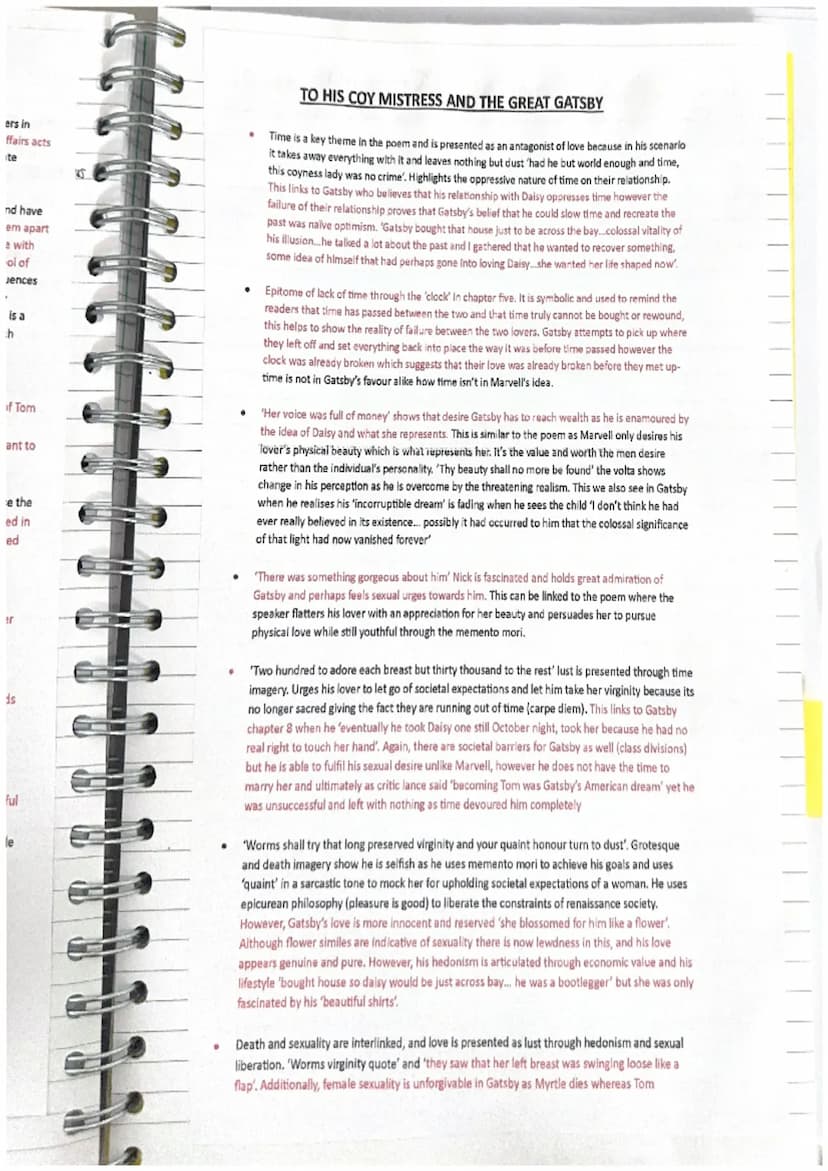 ers in
ffairs acts
te
nd have
em apart
e with
ol of
uences
is a
h
of Tom
ant to
e the
ed in
ed
er
ds
ful
le
TO HIS COY MISTRESS AND THE GREAT GATSBY
• Time is a key theme in the poem and is presented as an antagonist of love because in his scenario
it takes away everything with it and leaves nothing but dust 'had he but world enough and time,
this coyness lady was no crime'. Highlights the oppressive nature of time on their relationship.
This links to Gatsby who believes that his relationship with Daisy oppresses time however the
failure of their relationship proves that Gatsby's belief that he could slow time and recreate the
past was naïve optimism. 'Gatsby bought that house just to be across the bay...colossal vitality of
his illusion...he talked a lot about the past and I gathered that he wanted to recover something,
some idea of himself that had perhaps gone into loving Daisy...she wanted her life shaped now'.
• Epitome of lack of time through the 'clock' in chapter five. It is symbolic and used to remind the
readers that time has passed between the two and that time truly cannot be bought or rewound,
this helps to show the reality of failure between the two lovers. Gatsby attempts to pick up where
they left off and set everything back into place the way it was before time passed however the
clock was already broken which suggests that their love was already broken before they met up-
time is not in Gatsby's favour alike how time isn't in Marvell's idea.
• 'Her voice was full of money' shows that desire Gatsby has to reach wealth as he is enamoured by
the idea of Daisy and what she represents. This is similar to the poem as Marvell only desires his
lover's physical beauty which is what represents her. It's the value and worth the men desire
rather than the individual's personality. 'Thy beauty shall no more be found' the volta shows
change in his perception as he is overcome by the threatening realism. This we also see in Gatsby
when he realises his 'incorruptible dream' is fading when he sees the child 'I don't think he had
ever really believed in its existence... possibly it had occurred to him that the colossal significance
of that light had now vanished forever'
• 'There was something gorgeous about him' Nick is fascinated and holds great admiration of
Gatsby and perhaps feels sexual urges towards him. This can be linked to the poem where the
speaker flatters his lover with an appreciation for her beauty and persuades her to pursue
physical love while still youthful through the memento mori.
• 'Two hundred to adore each breast but thirty thousand to the rest' lust is presented through time
imagery. Urges his lover to let go of societal expectations and let him take her virginity because its
no longer sacred giving the fact they are running out of time (carpe diem). This links to Gatsby
chapter 8 when he 'eventually he took Daisy one still October night, took her because he had no
real right to touch her hand'. Again, there are societal barriers for Gatsby as well (class divisions)
but he is able to fulfil his sexual desire unlike Marvell, however he does not have the time to
marry her and ultimately as critic lance said 'becoming Tom was Gatsby's American dream' yet he
was unsuccessful and left with nothing as time devoured him completely
• 'Worms shall try that long preserved virginity and your quaint honour turn to dust'. Grotesque
and death imagery show he is selfish as he uses memento mori to achieve his goals and uses
'quaint' in a sarcastic tone to mock her for upholding societal expectations of a woman. He uses
epicurean philosophy (pleasure is good) to liberate the constraints of renaissance society.
However, Gatsby's love is more innocent and reserved 'she blossomed for him like a flower'.
Although flower similes are indicative of sexuality there is now lewdness in this, and his love
appears genuine and pure. However, his hedonism is articulated through economic value and his
lifestyle 'bought house so daisy would be just across bay... he was a bootlegger' but she was only
fascinated by his 'beautiful shirts'.
• Death and sexuality are interlinked, and love is presented as lust through hedonism and sexual
liberation. 'Worms virginity quote' and 'they saw that her left breast was swinging loose like a
flap'. Additionally, female sexuality is unforgivable in Gatsby as Myrtle dies whereas Tom